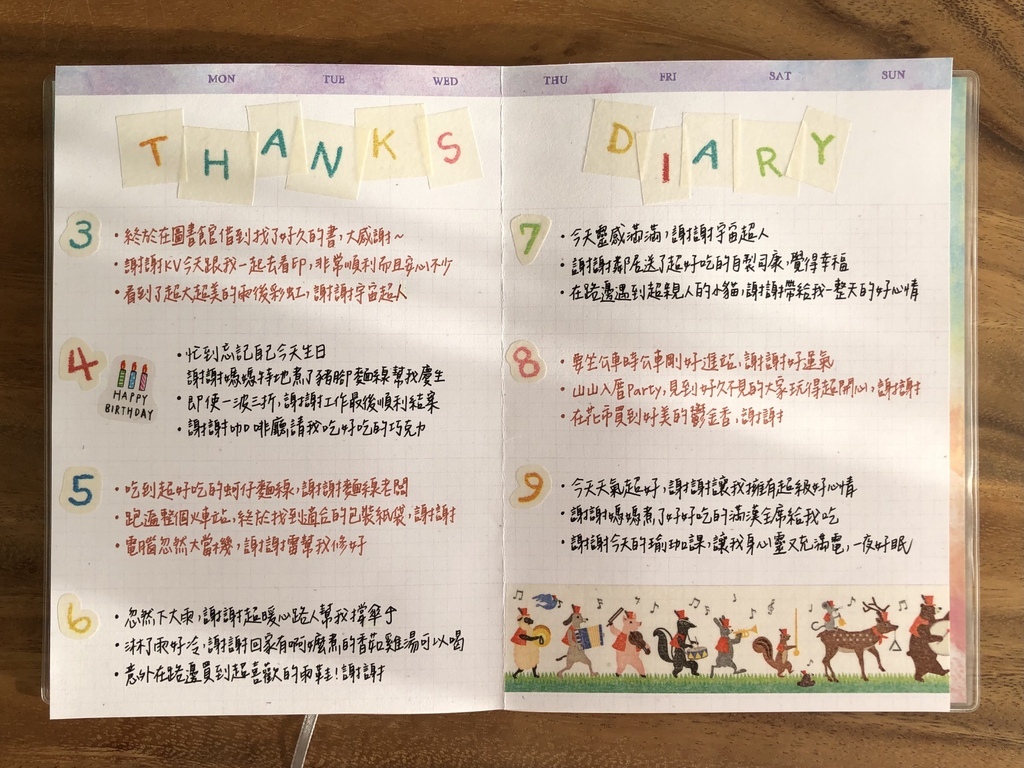 MON TUE WED THU FRI SAT SUN
THANKS DIARY
3
・終於在圖書館借到找了好久的書,大感謝~
・謝謝KV今天跟我一起去看印,非常順利而且安心不少
・看到了超大超美的雨後彩虹,謝謝宇宙超人
4
HAPPY
BIRTHDAY
・忙到忘記自己今天生日
謝謝媽媽特地煮了豬腳麵線幫我慶生
・即使一波三折,謝謝工作最後順利結案
・謝謝咖啡廳請我吃好吃的巧克力
5
・吃到超好吃的蚵仔麵線,謝謝麵線老闆
・跑遍整個火車站,終於找到適合的包裝紙袋,謝謝
・電腦忽然大當機,謝謝雷幫我修好
6
・忽然下大雨,謝謝超暖心路人幫我撐傘
・淋了雨好冷,謝謝回家有阿嬤煮的香菇雞湯可以喝
・意外在路邊買到超喜歡的雨鞋!謝謝
7
・今天靈感滿滿,謝謝宇宙超人
・謝謝鄰居送了超好吃的自製司康,覺得幸福
・在路邊遇到超親人的小貓,謝謝帶給我一整天的好心情
8
・要坐公車時公車剛好進站,謝謝好運氣
・山山入厝Party,見到好久不見的大家玩得超開心,謝謝
・在花市買到好美的鬱金香,謝謝
9
・今天天氣超好,謝謝讓我擁有超級好心情
・謝謝媽媽煮了好好吃的滿漢全席給我吃
・謝謝今天的瑜珈課,讓我身心靈又充滿電,一夜好眠